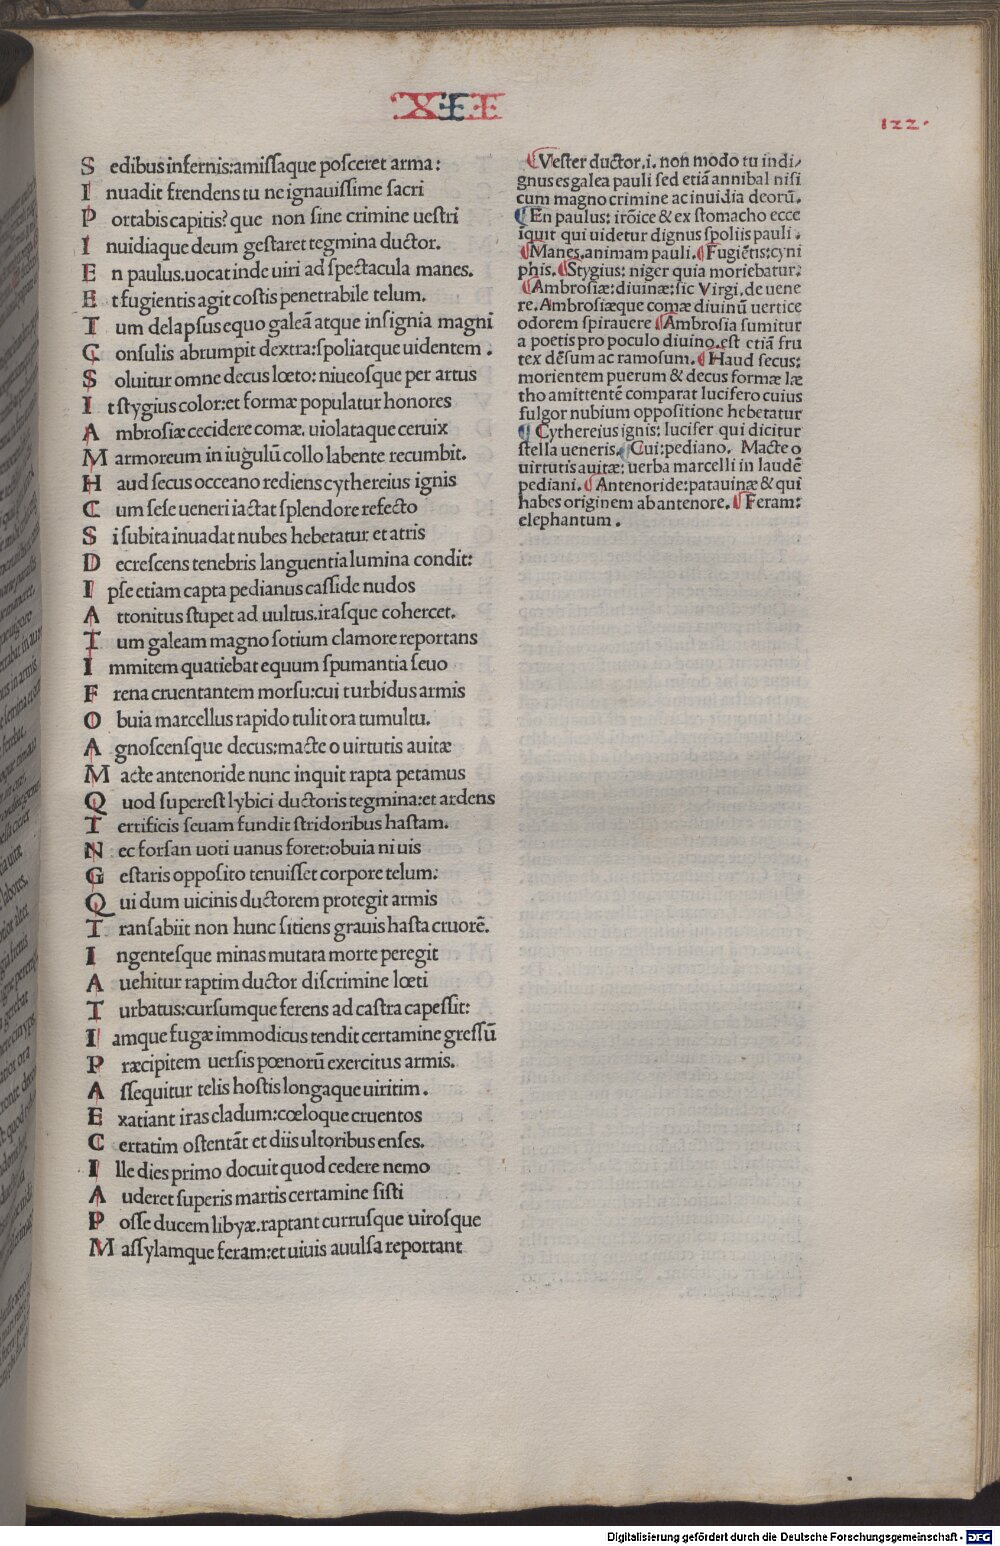 XII
122.
S edibus infernis:amiſſaque poſceret arma:
I nuadit frendens tu ne ignauiſſime ſacri
P ortabis capitis? que non ſine crimine ueſtri
I nuidiaque deum geſtaret tegmina ductor.
E n paulus.uocat inde uiri ad ſpectacula manes.
E t fugientis agit coſtis penetrabile telum.
T um delapſus equo galeā atque inſignia magni
C onſulis abrumpit dextra:ſpoliatque uidentem .
S oluitur omne decus lœto: niueoſque per artus
I t ſtygius color:et formæ populatur honores
A mbroſiæ cecidere comæ. uiolataque ceruix
M armoreum in iugulū collo labente recumbit.
H aud ſecus occeano rediens cythereius ignis
C um ſeſe ueneri iactat ſplendore refecto
S i ſubita inuadat nubes hebetatur et atris
D ecreſcens tenebris languentia lumina condit:
I pſe etiam capta pedianus caſſide nudos
A ttonitus ſtupet ad uultus.iraſque cohercet.
T um galeam magno ſotium clamore reportans
I mmitem quatiebat equum ſpumantia ſeuo
F rena cruentantem morſu:cui turbidus armis
O buia marcellus rapido tulit ora tumultu.
A gnoſcenſque decus:macte o uirtutis auitæ
M acte antenoride nunc inquit rapta petamus
Q uod ſupereſt lybici ductoris tegmina:et ardens
T ertificis ſeuam fundit ſtridoribus haſtam.
N ec forſan uoti uanus foret:obuia ni uis
G eſtaris oppoſito tenuiſſet corpore telum:
Q ui dum uicinis ductorem protegit armis
T ranſabiit non hunc ſitiens grauis haſta cruorē.
I ngenteſque minas mutata morte peregit
A uehitur raptim ductor diſcrimine lœti
T urbatus:curſumque ferens ad caſtra capeſſit:
I amque fugæ immodicus tendit certamine greſſū
P ræcipitem uerſis pœnorū exercitus armis.
A ſſequitur telis hoſtis longaque uiritim .
E xatiant iras cladum:cœloque cruentos
C ertatim oſtentāt et diis ultoribus enſes.
I lle dies primo docuit quod cedere nemo
A uderet ſuperis martis certamine ſiſti
P oſſe ducem libyæ.raptant curruſque uiroſque
M aſſylamque feram:et uiuis auulſa reportant
¶Veſter ductor.i. non modo tu indi/
gnus es galea pauli ſed etiā annibal niſi
cum magno crimine ac inuidia deorū.
¶ En paulus: irōice & ex ſtomacho ecce
īquit qui uidetur dignus ſpoliis pauli .
¶Manes.animam pauli.¶Fugiētis:cyni
phis.¶Stygius: niger quia moriebatur:
¶Ambroſiæ:diuinæ:ſic Virgi.de uene
re.Ambroſiæque comæ diuinū uertice
odorem ſpirauere ¶Ambroſia ſumitur
a poetis pro poculo diuino.eſt etiā fru
tex dēſum ac ramoſum. ¶ Haud ſecus:
morientem puerum & decus formæ læ
tho amittentē comparat lucifero cuius
fulgor nubium oppoſitione hebetatur
¶ Cythereius ignis: lucifer qui dicitur
ſtella ueneris.¶Cui:pediano. Macte o
uirtutis auitæ: uerba marcelli in laudē
pediani.¶ Antenoride:patauinæ & qui
habes originem ab antenore. ¶ Feram:
elephantum .
Digitalisierung gefördert durch die Deutsche Forschungsgemeinschaft - DFG